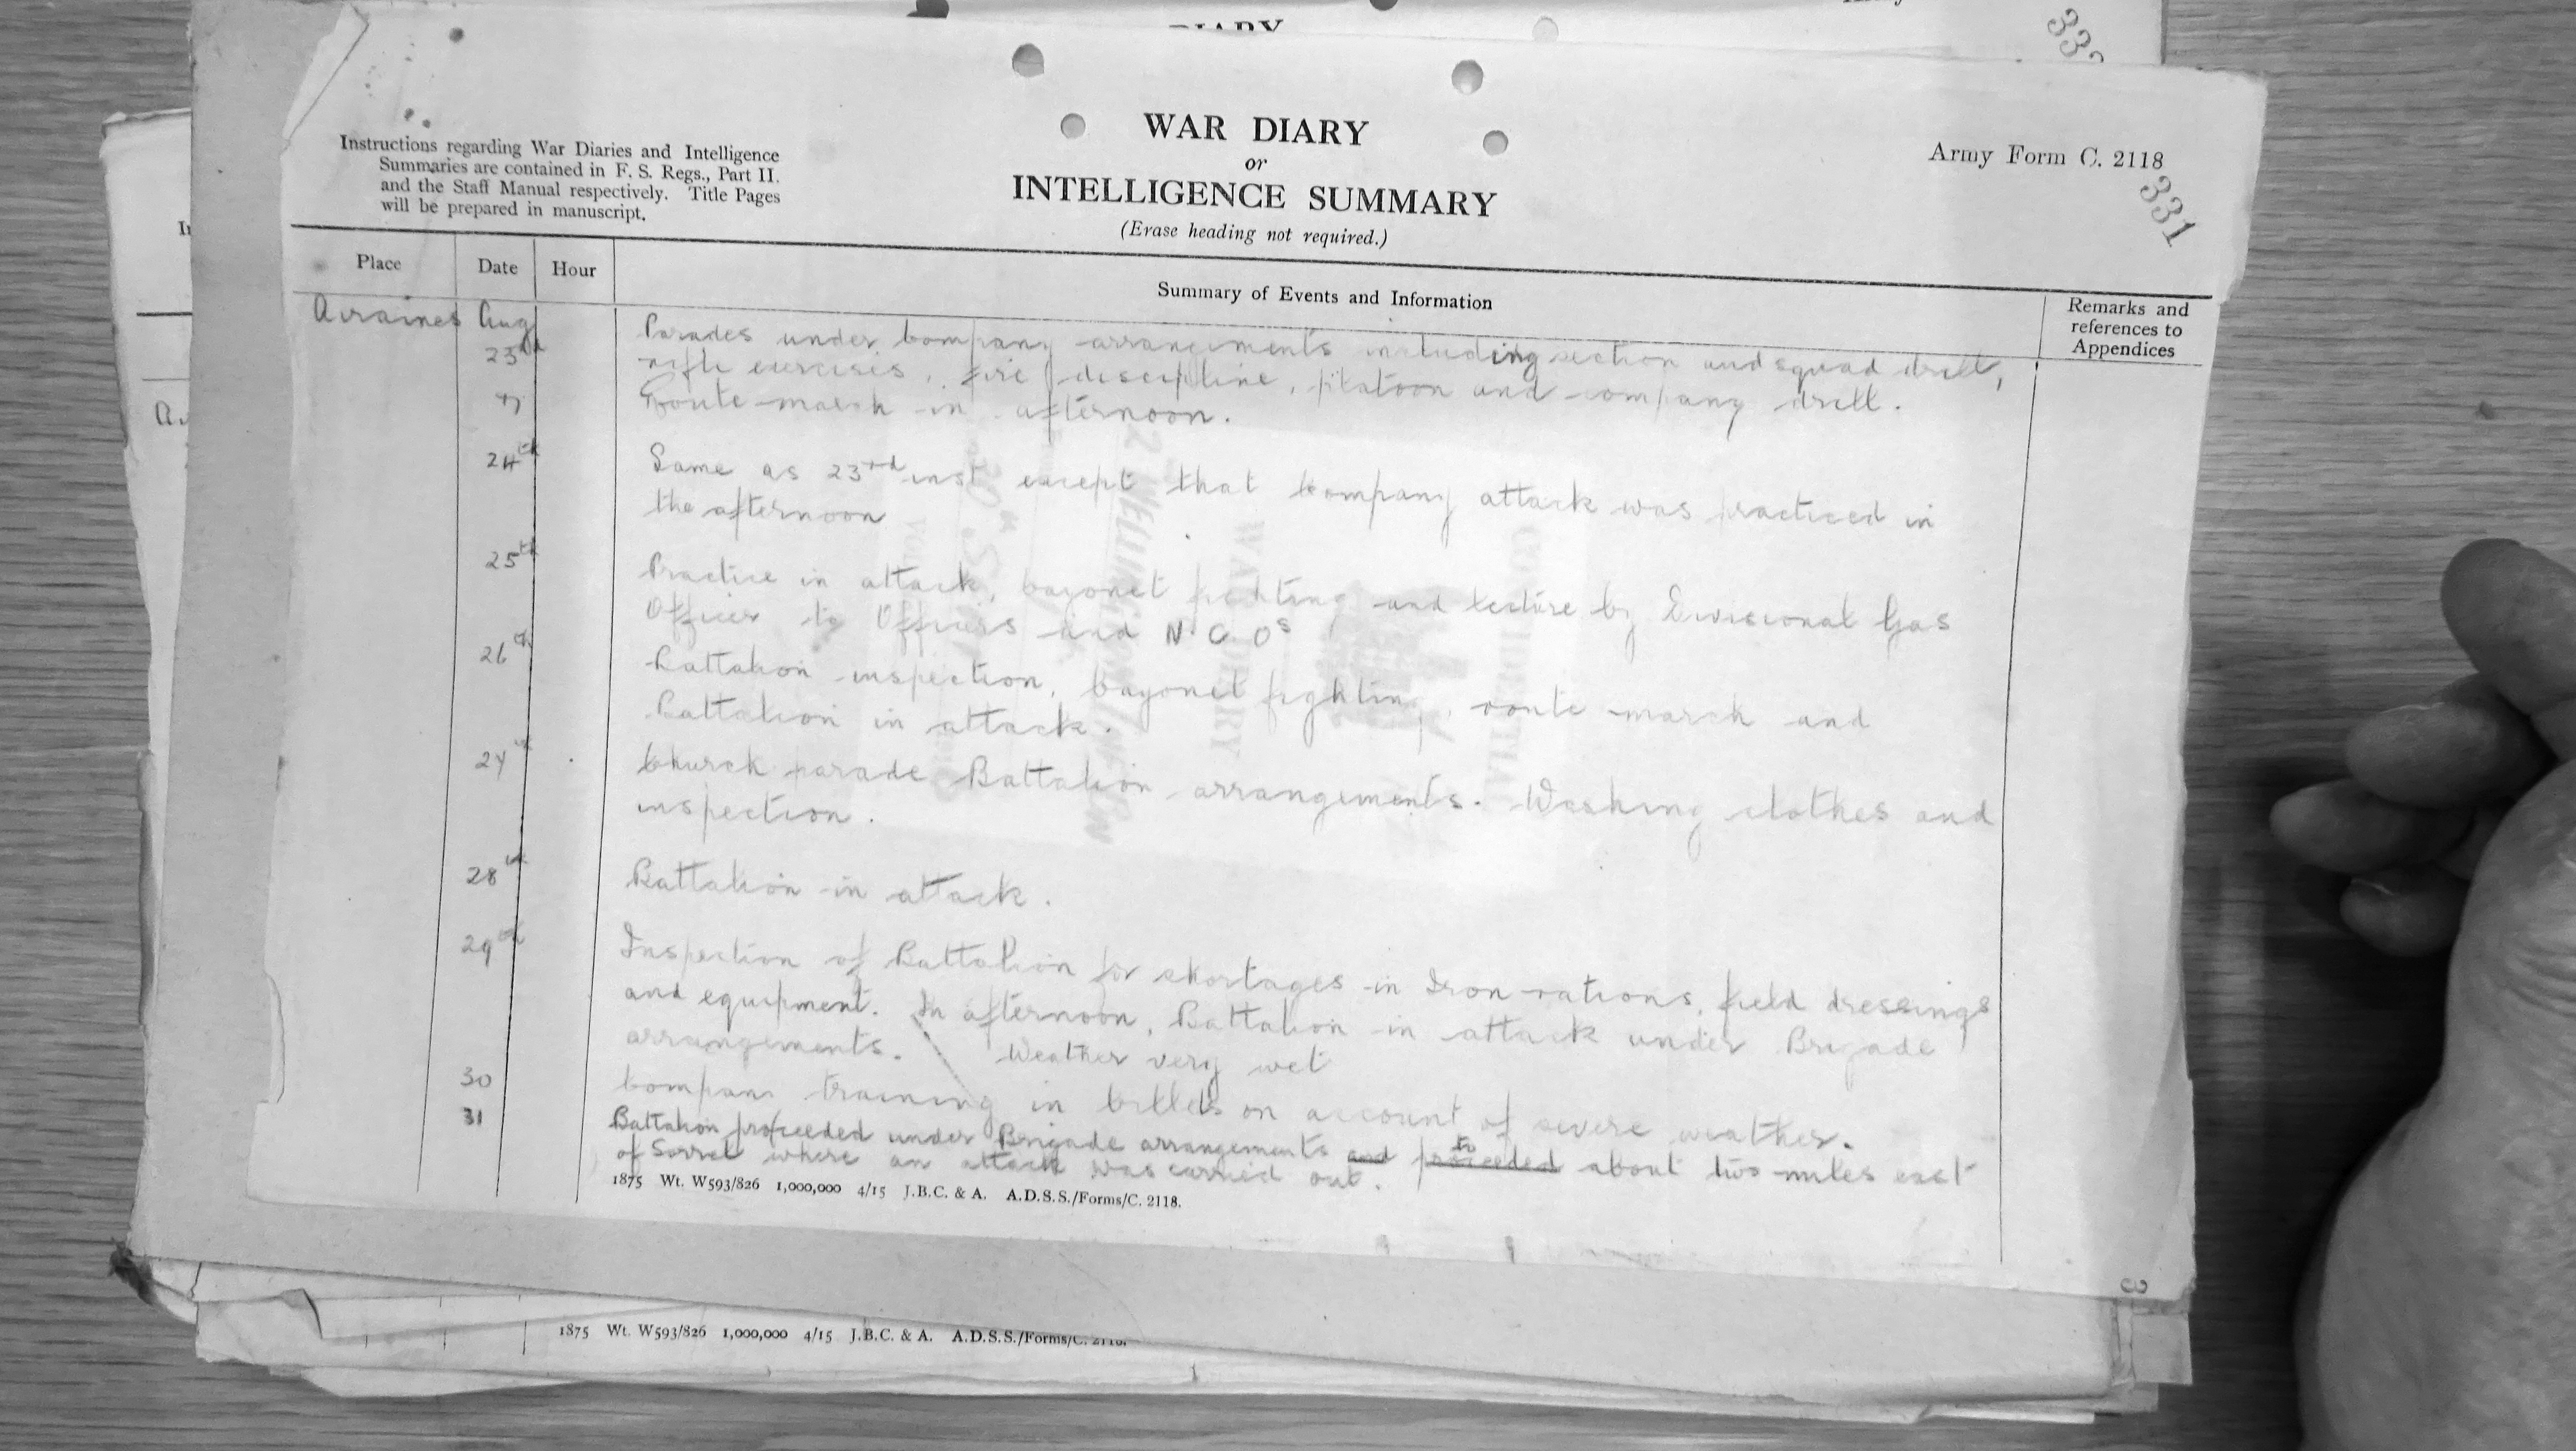 DIARY
Army
333
Instructions regarding War Diaries and Intelligence
Summaries are contained in F. S. Regs., Part II.
and the Staff Manual respectively. Title Pages
will be prepared in manuscript.
WAR DIARY
or
INTELLIGENCE SUMMARY
(Erase heading not required.)
Army Form C. 2118
331
Place
Date
Hour
Summary of Events and Information
Remarks and
references to
Appendices
Airaines
Aug
23rd
Parades under Company arrangements including section and squad drill,
rifle exercises, fire discipline, platoon and company drill.
Route march in afternoon.
24th
Same as 23rd inst except that Company attack was practiced in
the afternoon
25th
Practice in attack, bayonet fighting and lecture by Divisional Gas
Officer to Officers and N.C.Os
26th
Battalion inspection, bayonet fighting, route march and
Battalion in attack.
27th
Church parade Battalion arrangements. Washing clothes and
inspection.
28th
Battalion in attack.
29th
Inspection of Battalion for shortages in Iron rations, field dressings
and equipment. In afternoon, Battalion in attack under Brigade
arrangements. Weather very wet
30
Company training in billets on account of severe weather.
31
Battalion proceeded under Brigade arrangements and proceeded to about two miles east
of Sorrel where an attack was carried out.
1875 Wt. W593/826 1,000,000 4/15 J.B.C. & A. A.D.S.S./Forms/C. 2118.
3
1875 Wt. W593/826 1,000,000 4/15 J.B.C. & A. A.D.S.S./Forms/C. 2118.